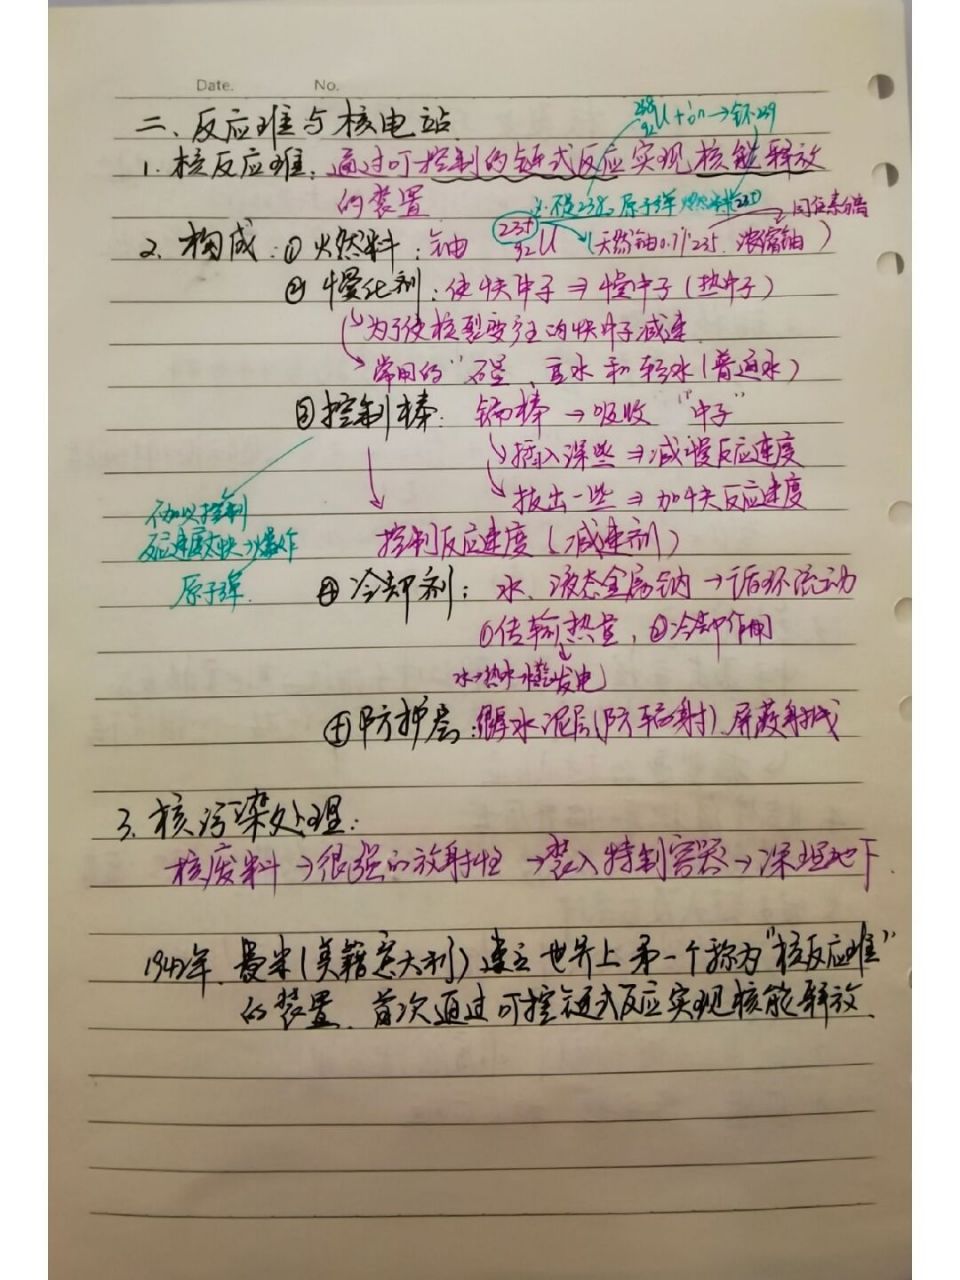 Date. No.
²³⁸₉₂U + ¹₀n → 钚239
二、反应堆与核电站
1. 核反应堆：通过可控制的链式反应实现核能释放
的装置
不是238 原子弹 燃料 235 同位素分离
2. 构成：① 燃料：铀 ²³⁵₉₂U （天然铀0.7%235 浓缩铀）
② 慢化剂：使快中子⇒慢中子（热中子）
为了使核裂变产生的快中子减速
常用的"石墨、重水和轻水（普通水）
③ 控制棒：镉棒 → 吸收"中子"
插入深些 ⇒ 减慢反应速度
拔出一些 ⇒ 加快反应速度
不加以控制
反应速度太快→爆炸
原子弹
控制反应速度（减速剂）
④ 冷却剂：水、液态金属钠 → 循环流动
①传输热量，②冷却作用
发电
④ 防护层：厚水泥层（防辐射）屏蔽射线
3. 核污染处理：
核废料 → 很强的放射性 → 装入特制容器 → 深埋地下
1942年 费米（美籍意大利）建立世界上第一个称为"核反应堆"
的装置、首次通过可控链式反应实现核能释放